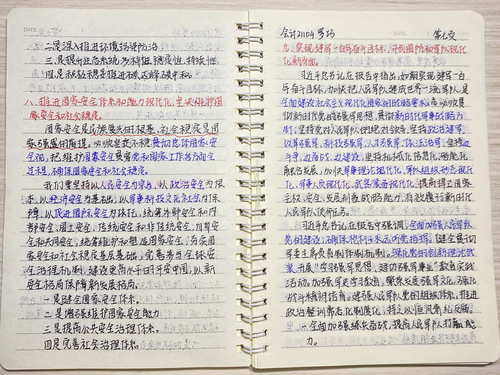 二是深入推进环境污染防治
三是提升生态系统多样性、稳定性、持续性
四是积极稳妥推进碳达峰碳中和。
八、推进国家安全体系和能力现代化,坚决维护国家安全和社会稳定。
国家安全是民族复兴的根基,社会稳定是国家强盛的前提。必须坚定不移贯彻总体国家安全观,把维护国家安全贯穿党和国家工作各方面全过程,确保国家安全和社会稳定。
我们要坚持以人民安全为宗旨、以政治安全为根本、以经济安全为基础、以军事科技文化社会为保障、以促进国际安全为依托,统筹外部安全和内部安全、国土安全、传统安全和非传统安全、自身安全和共同安全,统筹维护和塑造国家安全,夯实国家安全和社会稳定基层基础,完善参与全球安全治理机制,建设更高水平的平安中国,以新安全格局保障新发展格局。
一是健全国家安全体系。
二是增强维护国家安全能力
三是提高公共安全治理体系。
四是完善社会治理体系。
会计2104
第七次
九、实现建军一百年奋斗目标,开创国防和军队现代化新局面。
习近平总书记在报告中指出,如期实现建军一百年奋斗目标,加快把人民军队建成世界一流军队,是全面建设社会主义现代化国家的战略要求。必须贯彻新时代党的强军思想,贯彻新时代军事战略方针,坚持党对人民军队的绝对领导,坚持政治建军、改革强军、科技强军、人才强军、依法治军,坚持边斗争、边备战、边建设,坚持机械化信息化智能化融合发展,加快军事理论现代化、军队组织形态现代化、军事人员现代化、武器装备现代化,提高捍卫国家主权、安全、发展利益战略能力,有效履行新时代人民军队使命任务。
习近平总书记在报告中强调,全面加强人民军队党的建设,确保枪杆子永远听党指挥。健全贯彻军委主席负责制体制机制。深化党的创新理论武装,开展“学习强军思想、建功强军事业”教育实践活动。加强军史学习教育,繁荣发展强军文化,强化战斗精神培育。建强人民军队党的组织体系,推进政治整训常态化制度化,持之以恒正风肃纪反腐。
一全面加强练兵备战,提高人民军队打赢能力。